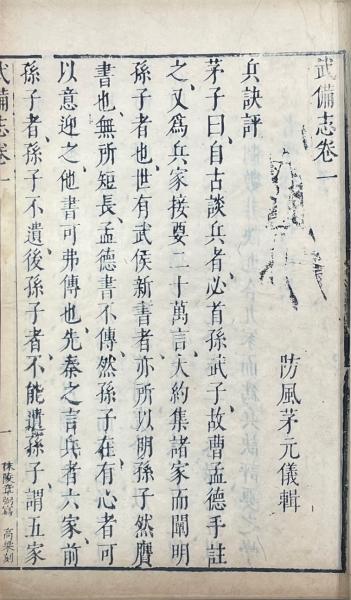 武備志卷一
防風茅元儀輯
兵訣評
茅子曰自古談兵者必首孫武子故曹孟德手註
之又爲兵家接要二十萬言大約集諸家而闡明
孫子者也世有武侯新書者亦所以明孫子然贋
書也無所短長孟德書不傳然孫子在有心者可
以意迎之他書可弗傳也先秦之言兵者六家前
孫子者孫子不遺後孫子者不能遺孫子謂五家
武備志卷一
一
秣陵章弼寫 高梁刻